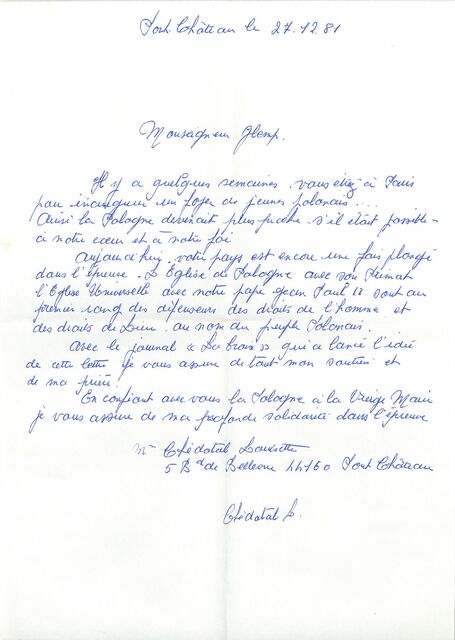 Pont-Château le 27.12.81
Monseigneur Glemp.
Il y a quelques semaines. vous étiez à Paris
pour inaugurer un foyer de jeunes polonais...
Ainsi la Pologne devenait plus proche - s'il était possible -
à notre cœur et à notre foi
Aujourd'hui. votre pays est encore une fois plongé
dans l'épreuve. L'Eglise de Pologne avec son Primat
l'Eglise Universelle avec notre pape Jean Paul II sont au
premier rang des défenseurs des droits de l'homme et
des droits de Dieu. au nom du peuple Polonais.
Avec le journal "La Croix" qui a lancé l'idée
de cette lettre je vous assure de tout mon soutien et
de ma prière.
En confiant avec vous la Pologne à la Vierge Marie
je vous assure de ma profonde solidarité dans l'épreuve
Chédotal
5 Bd de Bellevue 44160 Pont Château
Chédotal L.